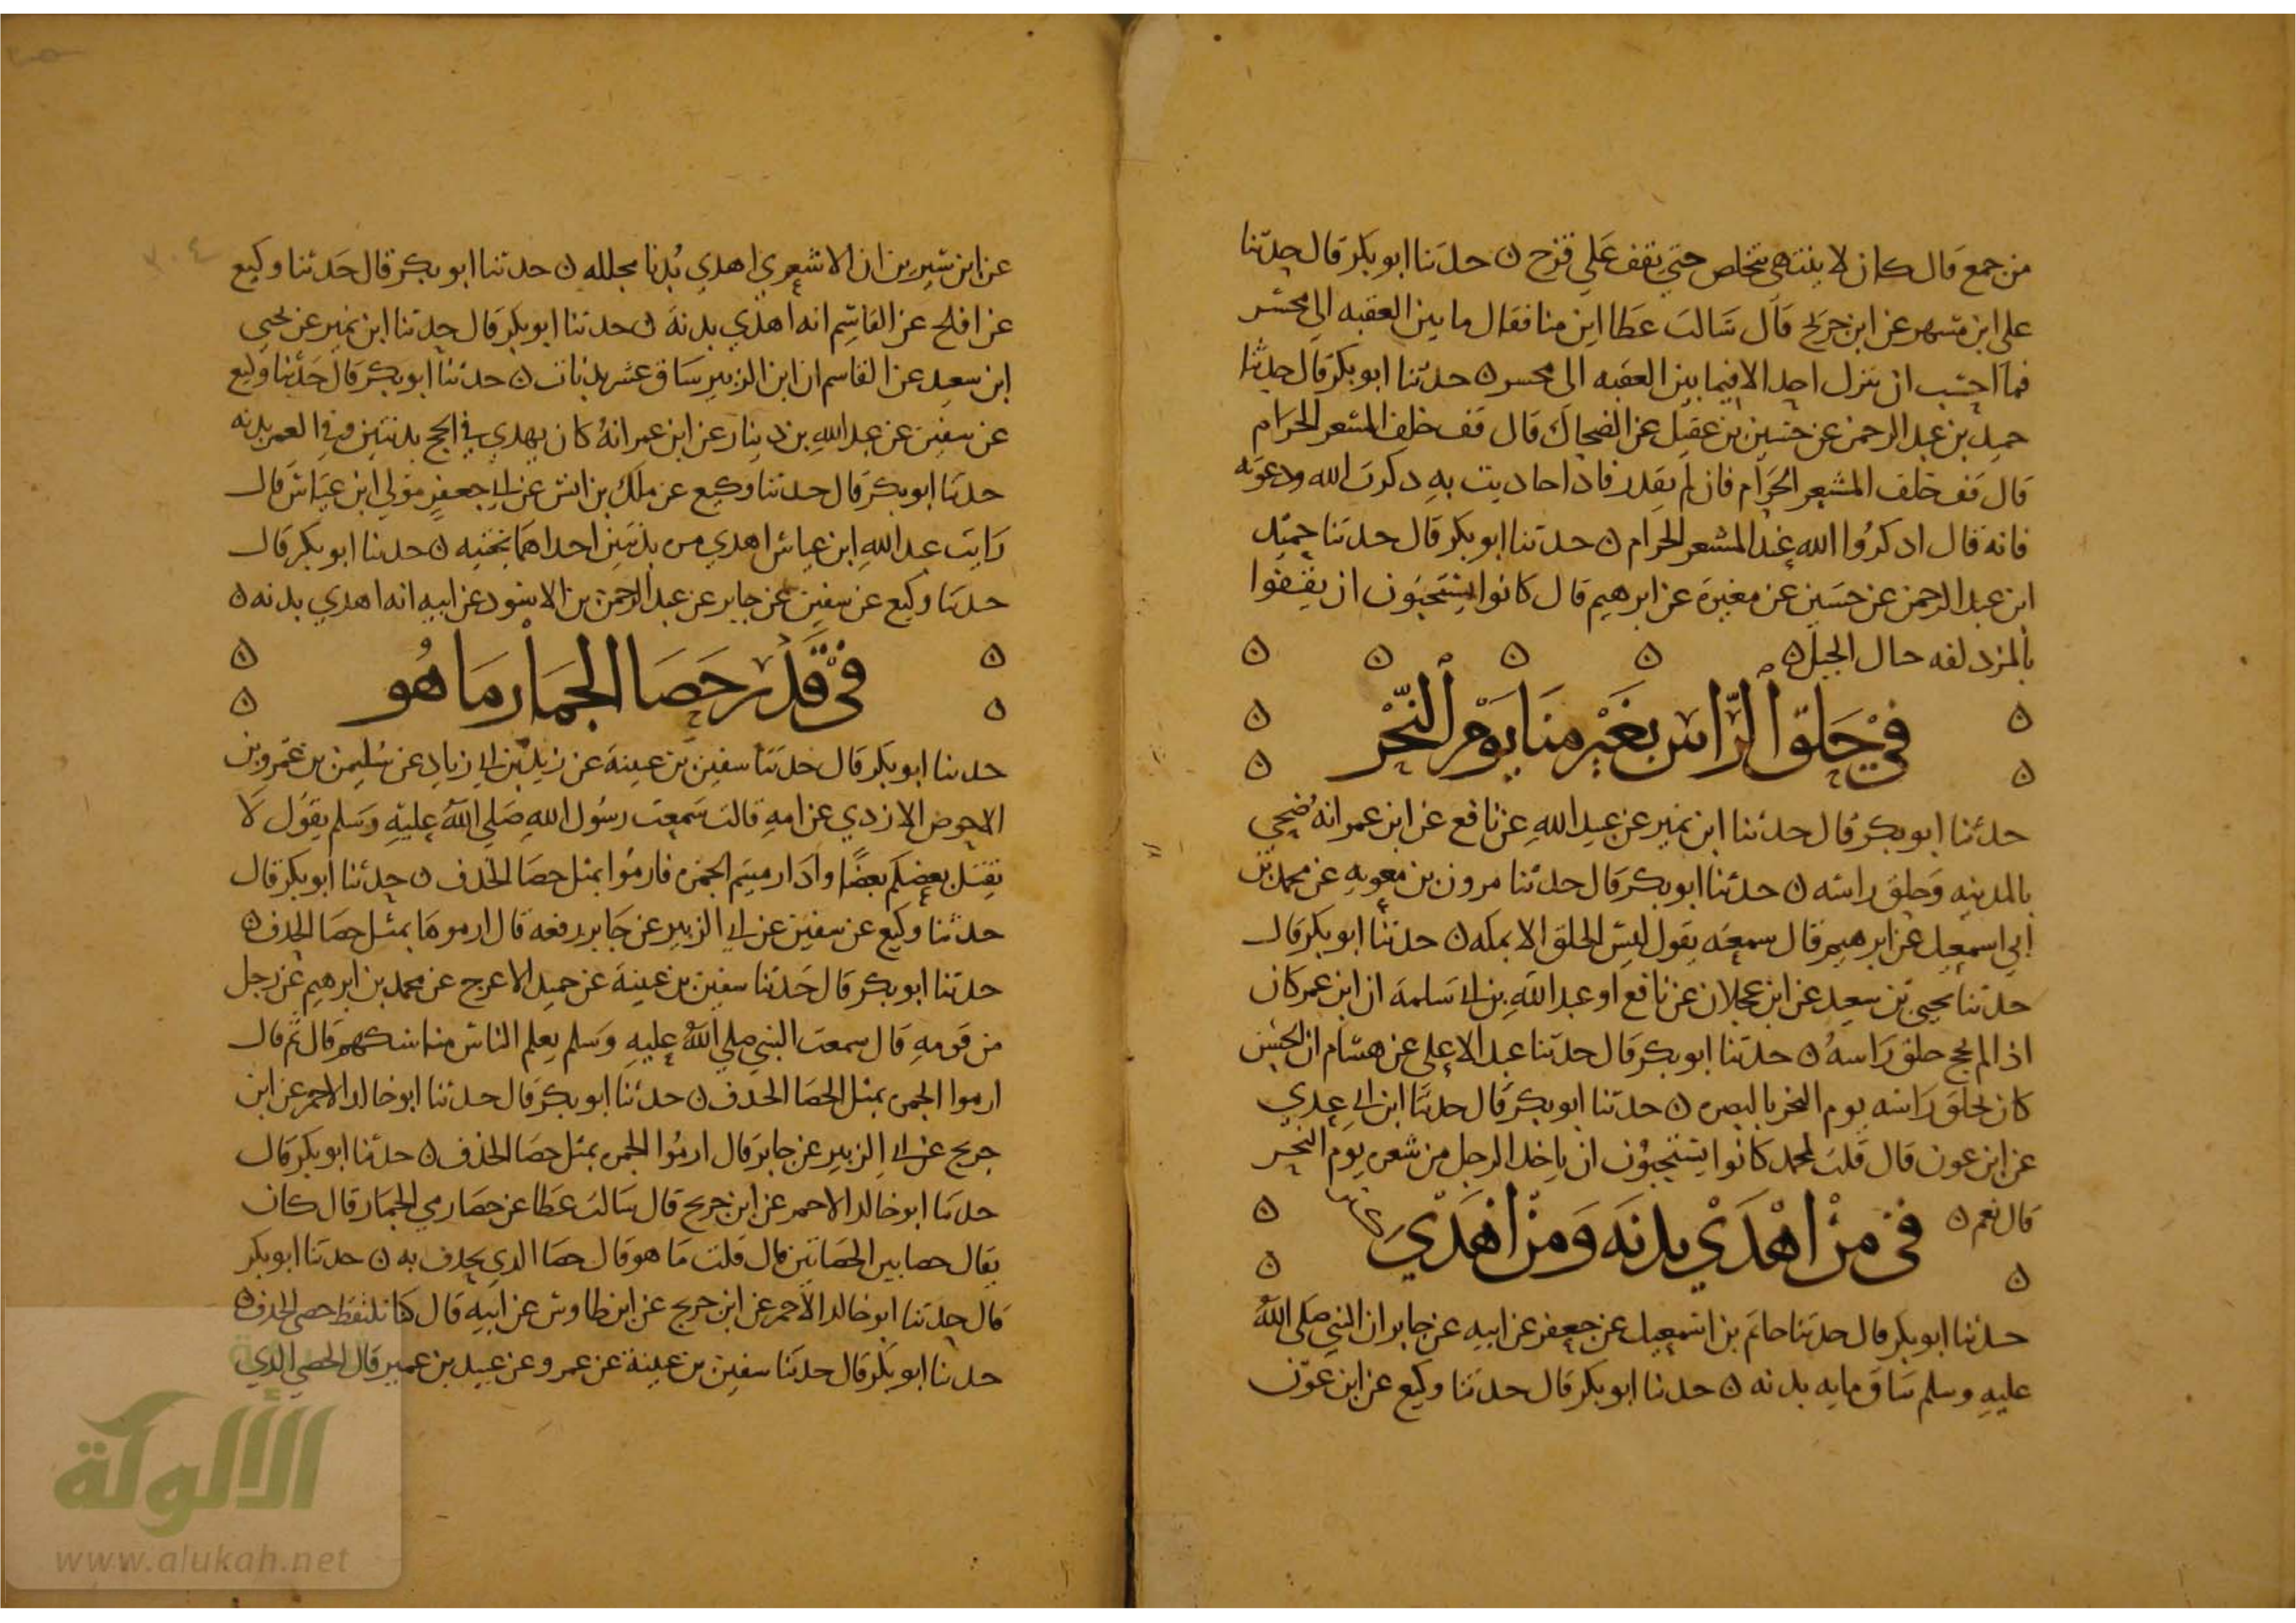 من جمع قال كان لا ينتهي يتخلص حتي يقف علي قزح ن حدثنا ابو بكر قال حدثنا
علي ابن مسهر عن ابن جريج قال سالت عطا اين منا فقال ما بين العقبه الي محسر
فما احب ان ينزل احد الا فيما بين العقبه الي محسر ن حدثنا ابو بكر قال حدثنا
حميد بن عبد الرحمن عن حسين بن عقيل عن الضحاك قال قف خلف المشعر الحرام
قال قف خلف المشعر الحرام فان لم يقدر فاذا حاديت به دكرت الله ودعوته
فانه قال ادكروا الله عند المشعر الحرام ن حدثنا ابو بكر قال حدثنا حميد
ابن عبد الرحمن عن حسين عن مغيرة عن ابرهيم قال كانوا يستحبون ان يقفوا
بالمزدلفه حال الجبل ن
في حلق الراس بغير منا يوم النحر
حدثنا ابو بكر قال حدثنا ابن نمير عن عبيد الله عن نافع عن ابن عمر انه ضحي
بالمدينه وحلق راسه ن حدثنا ابو بكر قال حدثنا مرون بن معويه عن محمد بن
ابي اسمعيل عن ابرهيم قال سمعته يقول ليس الحلق الا بمكه ن حدثنا ابو بكر قال
حدثنا يحيي بن سعيد عن ابن عجلان عن نافع او عبد الله بن ابي سلمة ان ابن عمر كان
اذا لم يحج حلق راسه ن حدثنا ابو بكر قال حدثنا عبد الاعلي عن هشام ان الحسن
كان يحلق راسه يوم النحر بالبصره ن حدثنا ابو بكر قال حدثنا ابن ابي عدي
عن ابن عون قال قلت لمحمد كانوا يستحبون ان ياخد الرجل من شعره يوم النحر
قال نعم ن
في من اهدي بدنه ومن اهدي
حدثنا ابو بكر قال حدثنا حاتم بن اسمعيل عن جعفر عن ابيه عن جابر ان النبي صلي الله
عليه وسلم ساق مايه بدنه ن حدثنا ابو بكر قال حدثنا وكيع عن ابن عون
٣٠٤
عن ابن سيرين ان الاشعري اهدي بدنا مجلله ن حدثنا ابو بكر قال حدثنا وكيع
عن افلح عن القاسم انه اهدي بدنة ن حدثنا ابو بكر قال حدثنا ابن نمير عن يحيي
ابن سعيد عن القاسم ان ابن الزبير ساق عشر بدنات ن حدثنا ابو بكر قال حدثنا وكيع
عن سفين عن عبد الله بن دينار عن ابن عمر انه كان يهدي في الحج بدنتين وفي العمره بدنه
حدثنا ابو بكر قال حدثنا وكيع عن ملك بن انس عن ابي جعفر مولي ابن عياش قال
رايت عبد الله ابن عياش اهدي بدنتين احداهما بختيه ن حدثنا ابو بكر قال
حدثنا وكيع عن سفين عن جابر عن عبد الرحمن بن الاسود عن ابيه انه اهدي بدنه ن
في قدر حصا الجمار ما هو
حدثنا ابو بكر قال حدثنا سفين بن عيينة عن زيد بن ابي زياد عن سليمن بن عمرو بن
الاحوص الازدي عن امه قالت سمعت رسول الله صلي الله عليه وسلم يقول لا
يقتل بعضكم بعضا واذا رميتم الجمره فارموا بمثل حصا الخذف ن حدثنا ابو بكر قال
حدثنا وكيع عن سفين عن ابي الزبير عن جابر رفعه قال ارموها بمثل حصا الخذف ن
حدثنا ابو بكر قال حدثنا سفين بن عيينة عن حميد الاعرج عن محمد بن ابرهيم عن رجل
من قومه قال سمعت النبي صلي الله عليه وسلم يعلم الناس مناسكهم قال ثم قال
ارموا الجمره بمثل الحصا الخذف ن حدثنا ابو بكر قال حدثنا ابو خالد الاحمر عن ابن
جريج عن ابي الزبير عن جابر قال ارموا الجمره بمثل حصا الخذف ن حدثنا ابو بكر قال
حدثنا ابو خالد الاحمر عن ابن جريج قال سالت عطا عن حصا رمي الجمار قال كان
يقال حصا بين الحصاتين قال قلت ما هو قال حصا الدي يخدف به ن حدثنا ابو بكر
قال حدثنا ابو خالد الاحمر عن ابن جريج عن ابن طاوس عن ابيه قال كنا نلتقط حصي الخذف ن
حدثنا ابو بكر قال حدثنا سفين بن عيينة عن عمرو عن عبيد بن عمير قال الحصي الدي
الألوكة
www.alukah.net